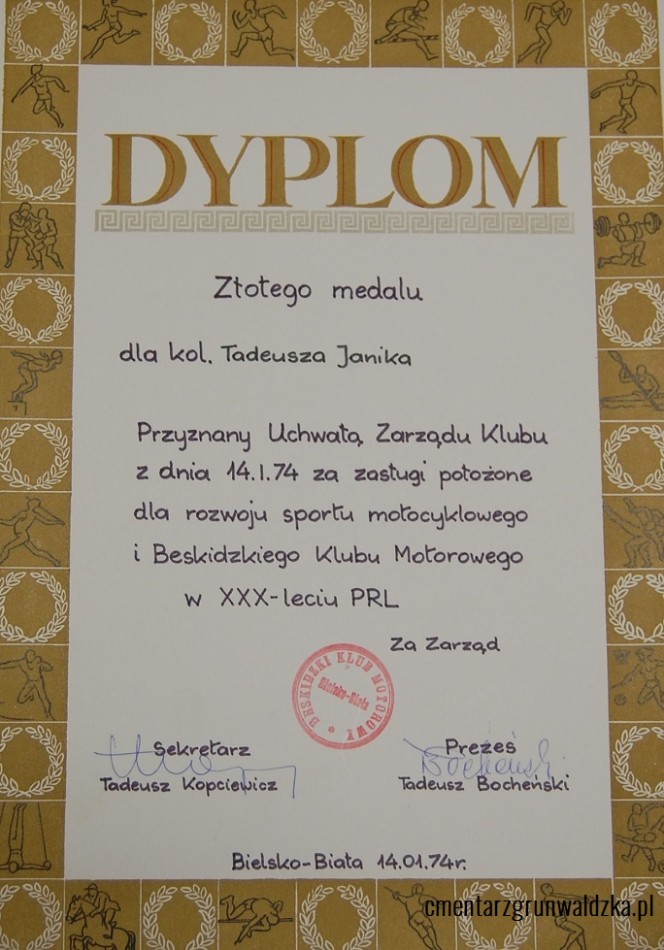 DYPLOM
Złotego medalu
dla kol. Tadeusza Janika
Przyznany Uchwałą Zarządu Klubu
z dnia 14.I.74 za zasługi położone
dla rozwoju sportu motocyklowego
i Beskidzkiego Klubu Motorowego
w XXX-leciu PRL
Za Zarząd
BESKIDZKI KLUB MOTOROWY
Bielsko-Biała
Sekretarz
Tadeusz Kopciewicz
Prezes
Bocheński
Tadeusz Bocheński
Bielsko-Biała 14.01.74r.
cmentarzgrunwaldzka.pl